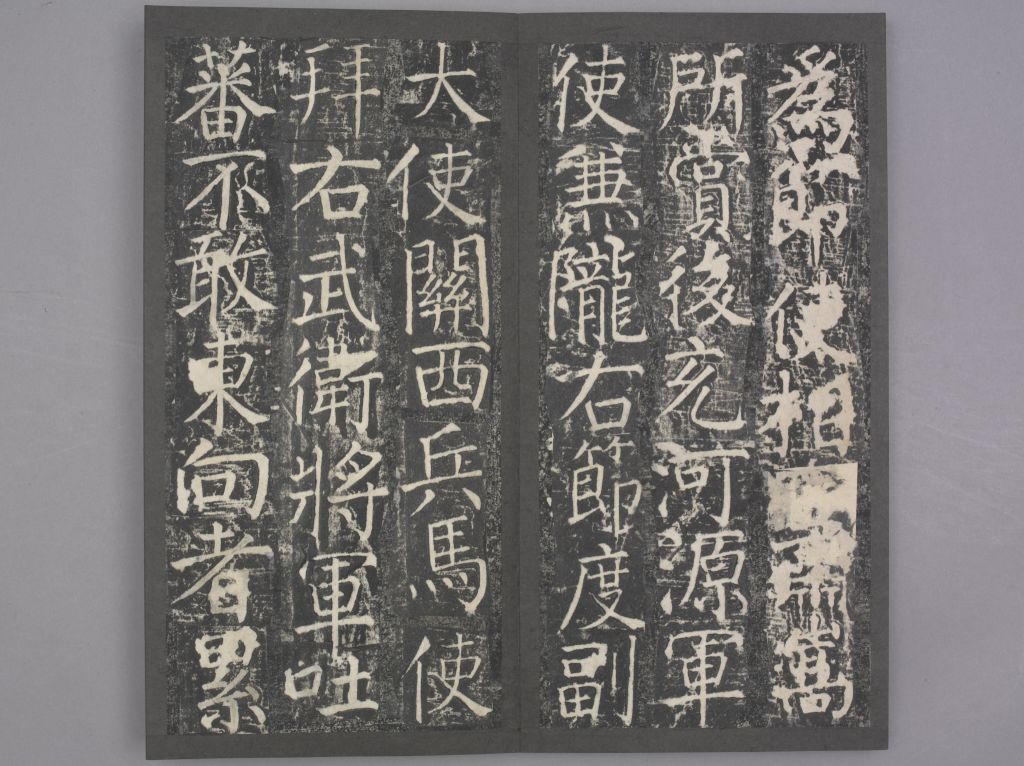 為節使相蕭嵩
所賞後充河源軍
使兼隴右節度副
大使關西兵馬使
拜右武衛將軍吐
蕃不敢東向者累